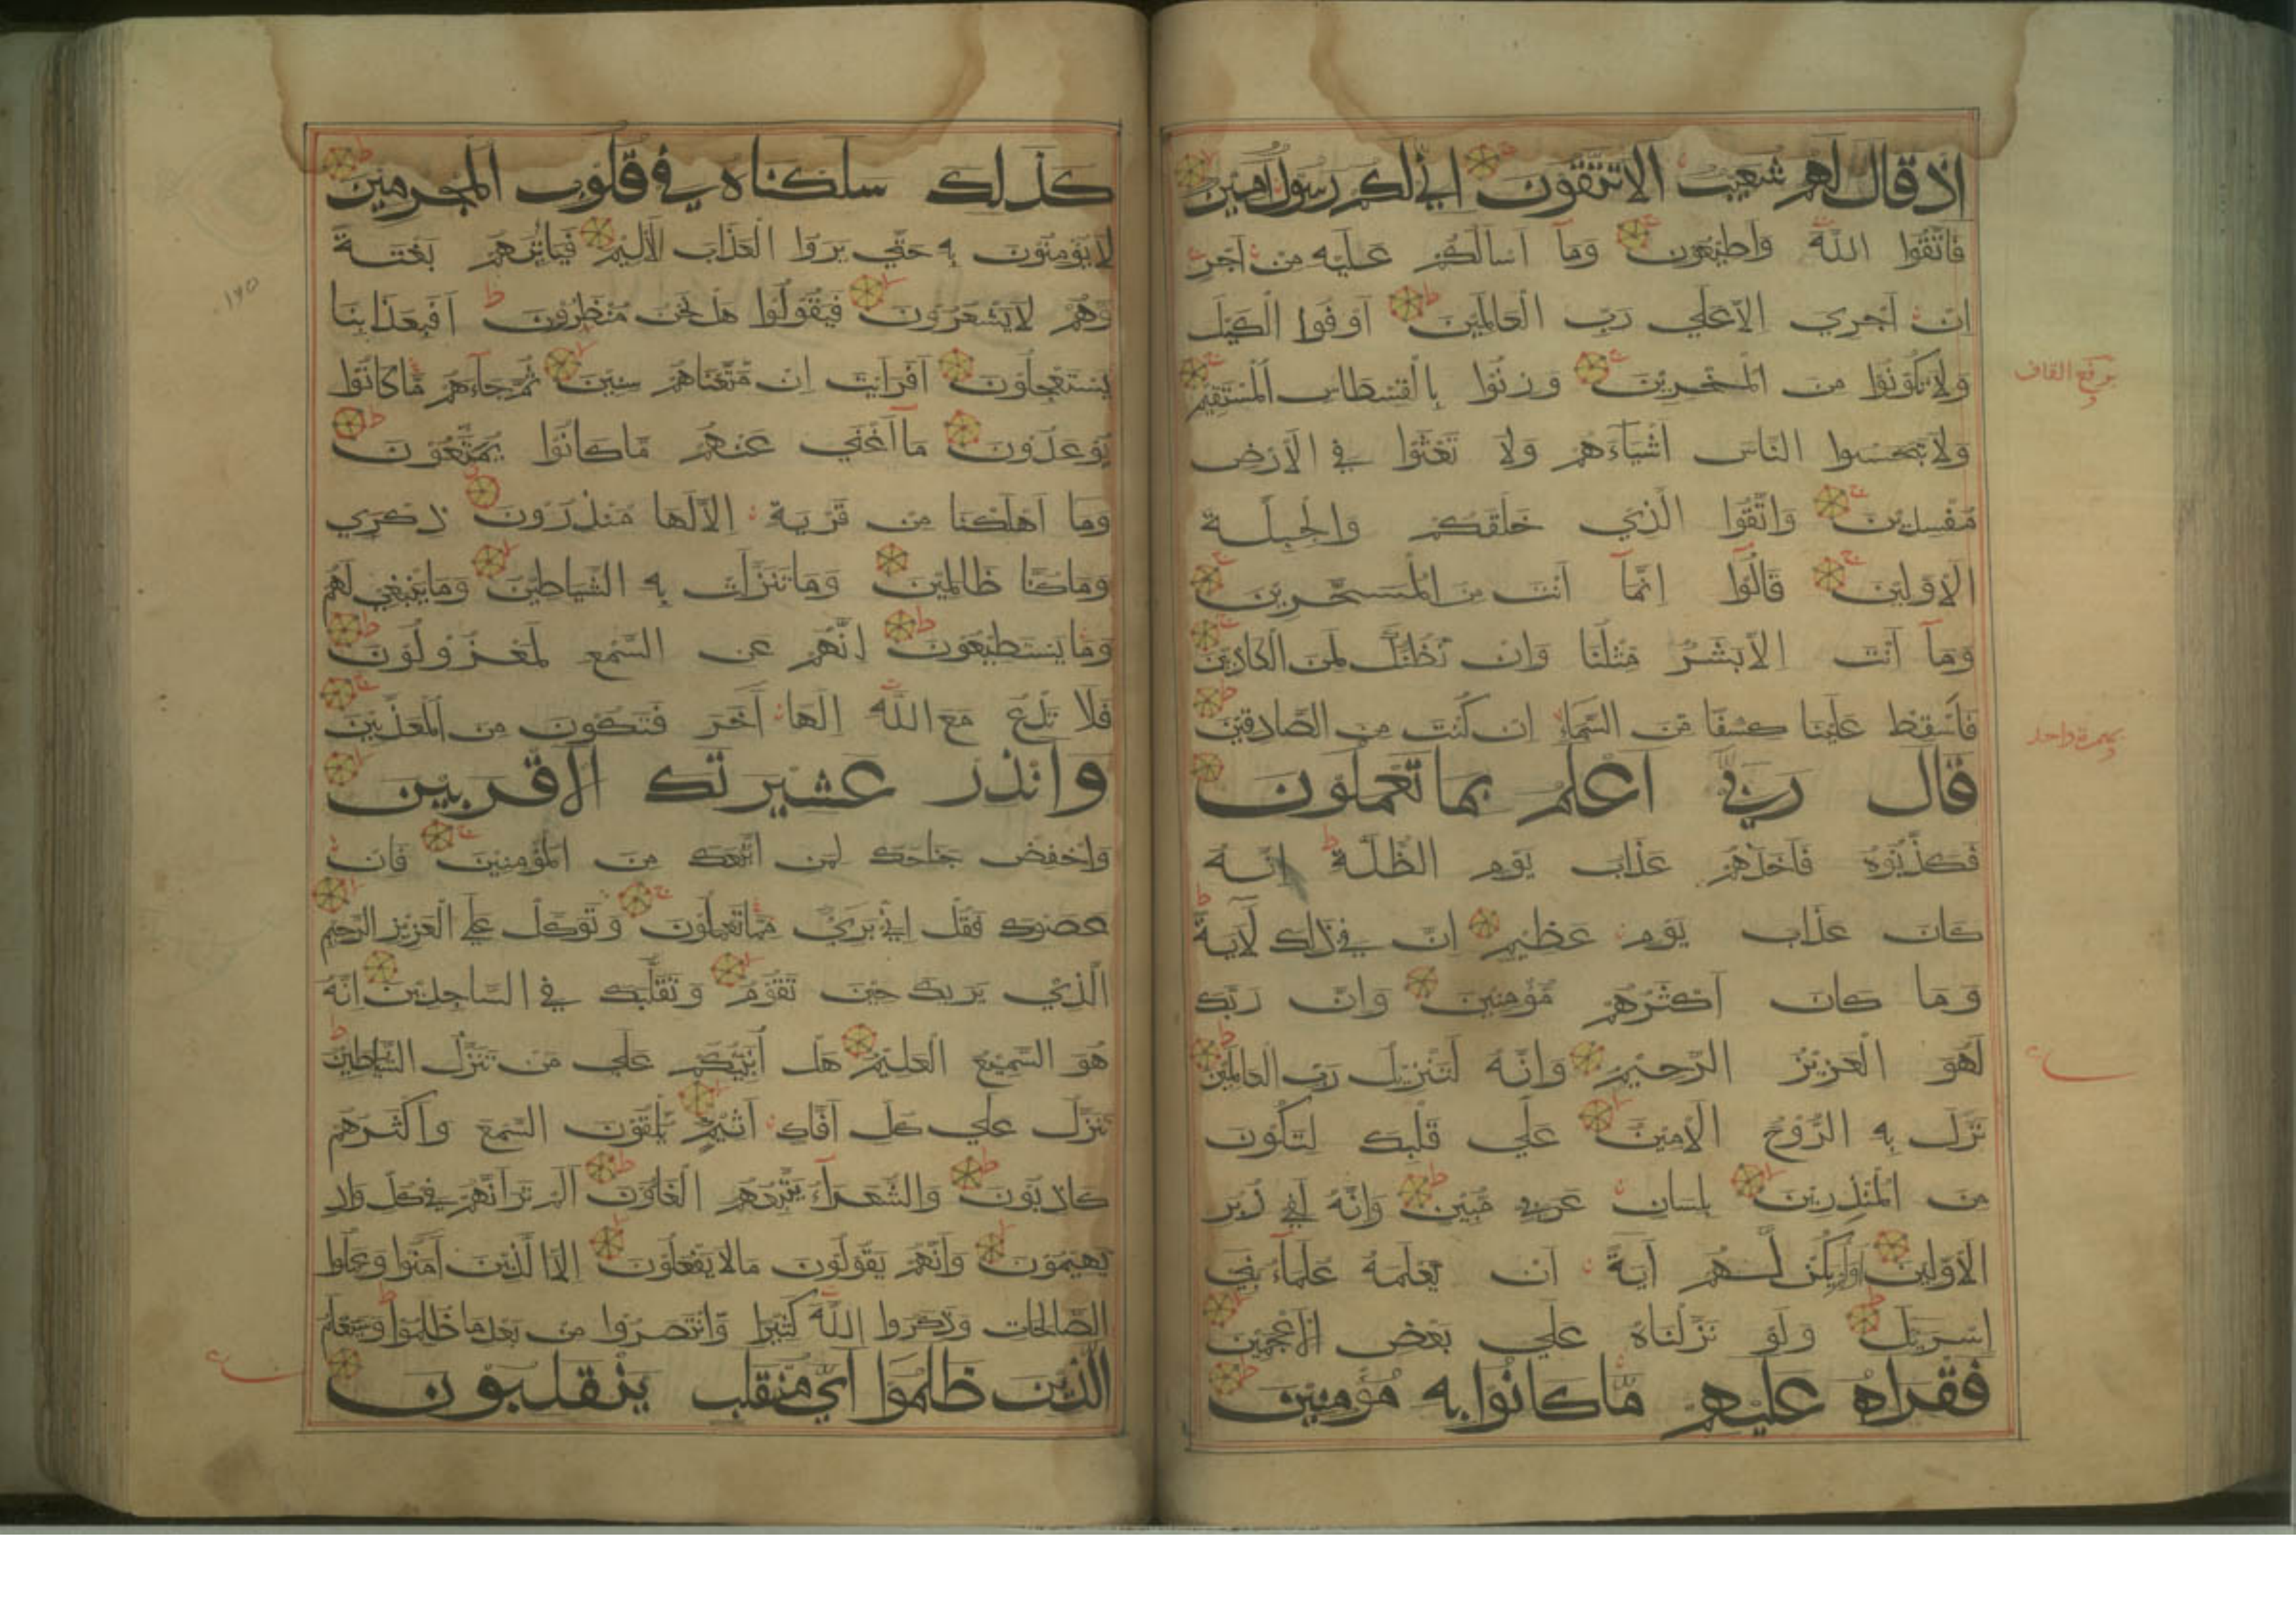 اذ قال لهم شعيب الا تتقون اني لكم رسول امين
فاتقوا الله واطيعون وما اسالكم عليه من اجر
ان اجري الا علي رب العالمين اوفوا الكيل
ولا تكونوا من المخسرين وزنوا بالقسطاس المستقيم
برفع القاف
ولا تبخسوا الناس اشياءهم ولا تعثوا في الارض
مفسدين واتقوا الذي خلقكم والجبلة
الاولين قالوا انما انت من المسحرين
وما انت الا بشر مثلنا وان نظنك لمن الكاذبين
فاسقط علينا كسفا من السماء ان كنت من الصادقين
قال ربي اعلم بما تعملون
فكذبوه فاخذهم عذاب يوم الظلة انه
كان عذاب يوم عظيم ان في ذلك لاية
وما كان اكثرهم مؤمنين وان ربك
لهو العزيز الرحيم وانه لتنزيل رب العالمين
نزل به الروح الامين علي قلبك لتكون
من المنذرين بلسان عربي مبين وانه لفي زبر
الاولين اولم يكن لهم اية ان يعلمه علماء بني
اسريل ولو نزلناه علي بعض الاعجمين
فقراه عليهم ما كانوا به مؤمنين
كذلك سلكناه في قلوب المجرمين
لا يؤمنون به حتي يروا العذاب الاليم فياتيهم بغتة
وهم لا يشعرون فيقولوا هل نحن منظرون افبعذابنا
يستعجلون افرايت ان متعناهم سنين ثم جاءهم ما كانوا
يوعدون ما اغني عنهم ما كانوا يمتعون
وما اهلكنا من قرية الا لها منذرون ذكري
وما كنا ظالمين وما تنزلت به الشياطين وما ينبغي لهم
وما يستطيعون انهم عن السمع لمعزولون
فلا تدع مع الله الها اخر فتكون من المعذبين
وانذر عشيرتك الاقربين
واخفض جناحك لمن اتبعك من المؤمنين فان
عصوك فقل اني بريء مما تعملون وتوكل علي العزيز الرحيم
الذي يريك حين تقوم وتقلبك في الساجدين انه
هو السميع العليم هل انبئكم علي من تنزل الشياطين
تنزل علي كل افاك اثيم يلقون السمع واكثرهم
كاذبون والشعراء يتبعهم الغاون الم تر انهم في كل واد
يهيمون وانهم يقولون ما لا يفعلون الا الذين امنوا وعملوا
الصالحات وذكروا الله كثيرا وانتصروا من بعد ما ظلموا وسيعلم
الذين ظلموا اي منقلب ينقلبون